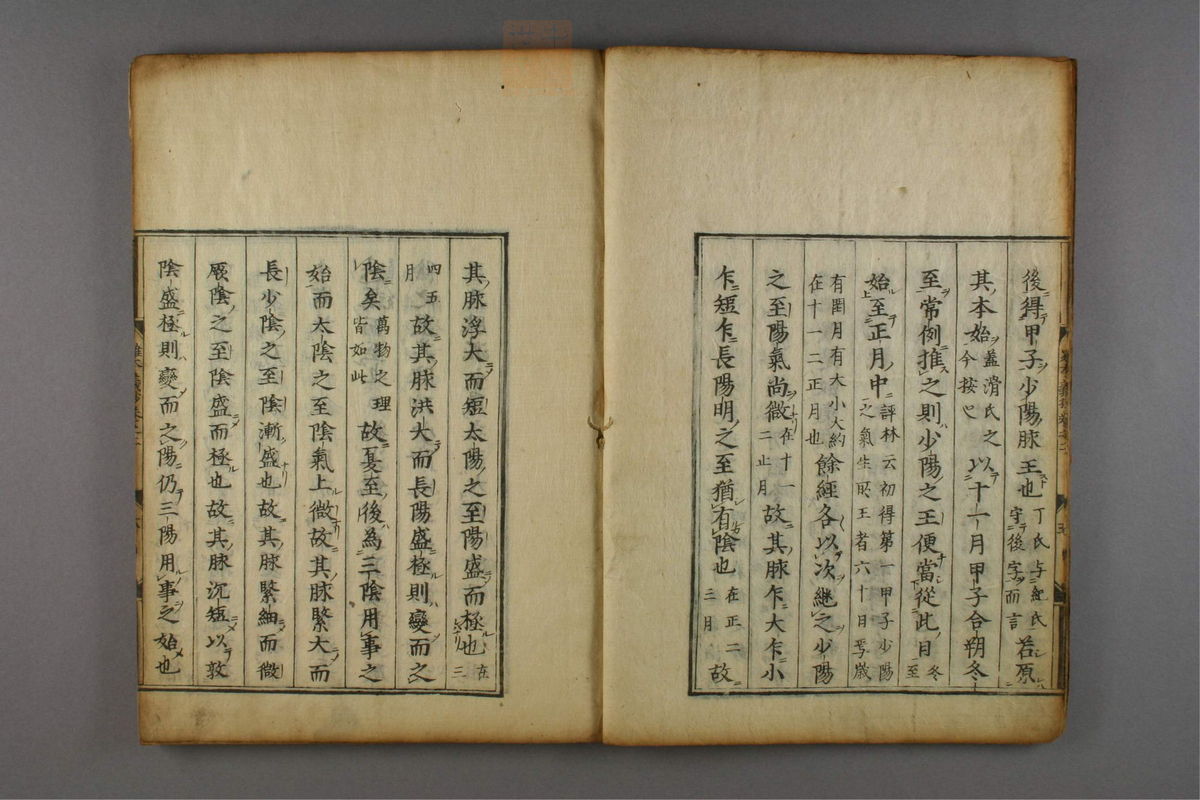 後得甲子少陽脉王也丁氏与紀氏守後字而言若原
其本始蓋滑氏之今按也以十一月甲子合朔冬
至常例推之則少陽之王便當從此日冬至
始至正月中評林云初得第一甲子少陽之氣生旺王者六十日
有閏月有大小大約在十一二正月也餘經各以次継之少陽
之至陽氣尚微在十一二正月故其脉乍大乍小
乍短乍長陽明之至猶有陰也在正二三月故
其脉浮大而短太陽之至陽盛而極也在三
四五月故其脉洪大而長陽盛極則變而之
陰矣萬物之理皆如此故夏至後為三陰用事之
始而太陰之至陰氣上微故其脉緊大而
長少陰之至陰漸盛也故其脉緊細而微
厥陰之至陰盛而極也故其脉沉短以敦
陰盛極則變而之陽仍三陽用事之始也